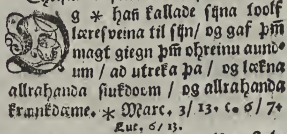 Og * hañ kallade sijna toolf
læresveina til sijn/ og gaf þm̃
magt giegn þm̃ ohreinu aund-
um/ ad utreka þa/ og lækna
allrahanda siukdom/ og allrahanda
krankdæme. * Marc. 3/13. c. 6/7.
Luc. 6/13.